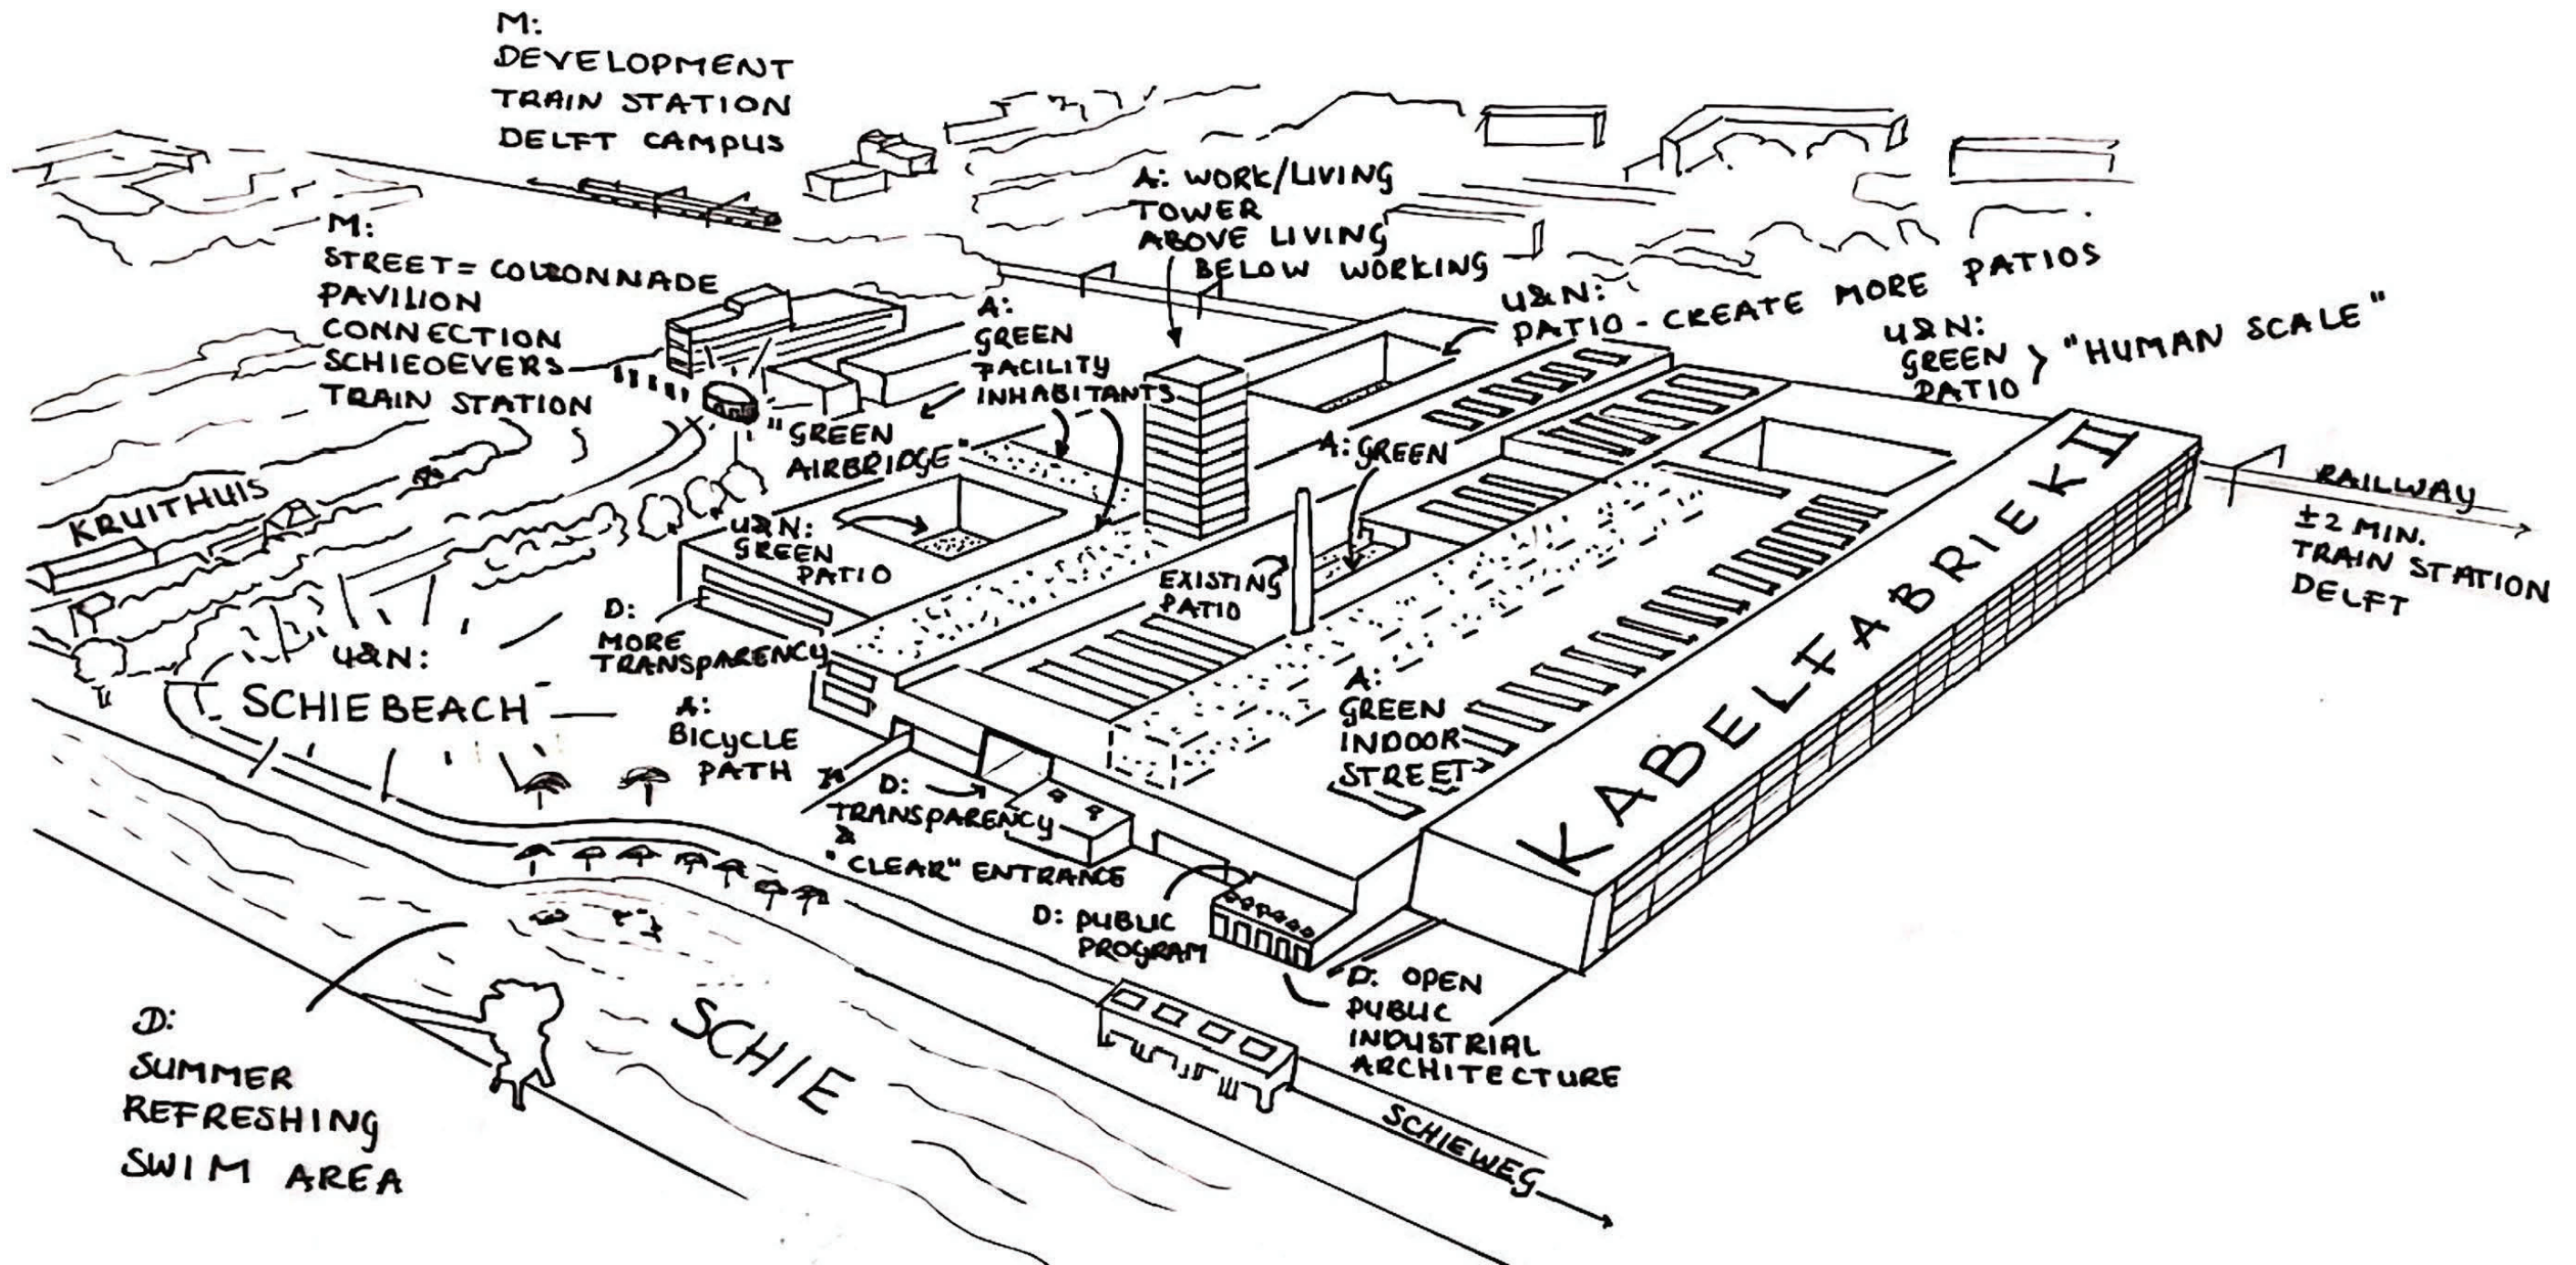 M:
DEVELOPMENT
TRAIN STATION
DELFT CAMPUS
M:
STREET = COLONNADE
PAVILION
CONNECTION
SCHIEOEVERS
TRAIN STATION
A: WORK/LIVING
TOWER
ABOVE LIVING
BELOW WORKING
U&N:
PATIO - CREATE MORE PATIOS
U&N:
GREEN
PATIO
"HUMAN SCALE"
A:
GREEN
FACILITY
INHABITANTS
"GREEN
AIRBRIDGE"
A: GREEN
KRUITHUIS
U&N:
GREEN
PATIO
EXISTING
PATIO
RAILWAY
±2 MIN.
TRAIN STATION
DELFT
KABELFABRIEK II
D:
MORE
TRANSPARENCY
U&N:
SCHIEBEACH
A:
BICYCLE
PATH
A:
GREEN
INDOOR
STREET
D:
TRANSPARENCY
&
"CLEAR" ENTRANCE
D: PUBLIC
PROGRAM
D: OPEN
PUBLIC
INDUSTRIAL
ARCHITECTURE
D:
SUMMER
REFRESHING
SWIM AREA
SCHIE
SCHIEWEG